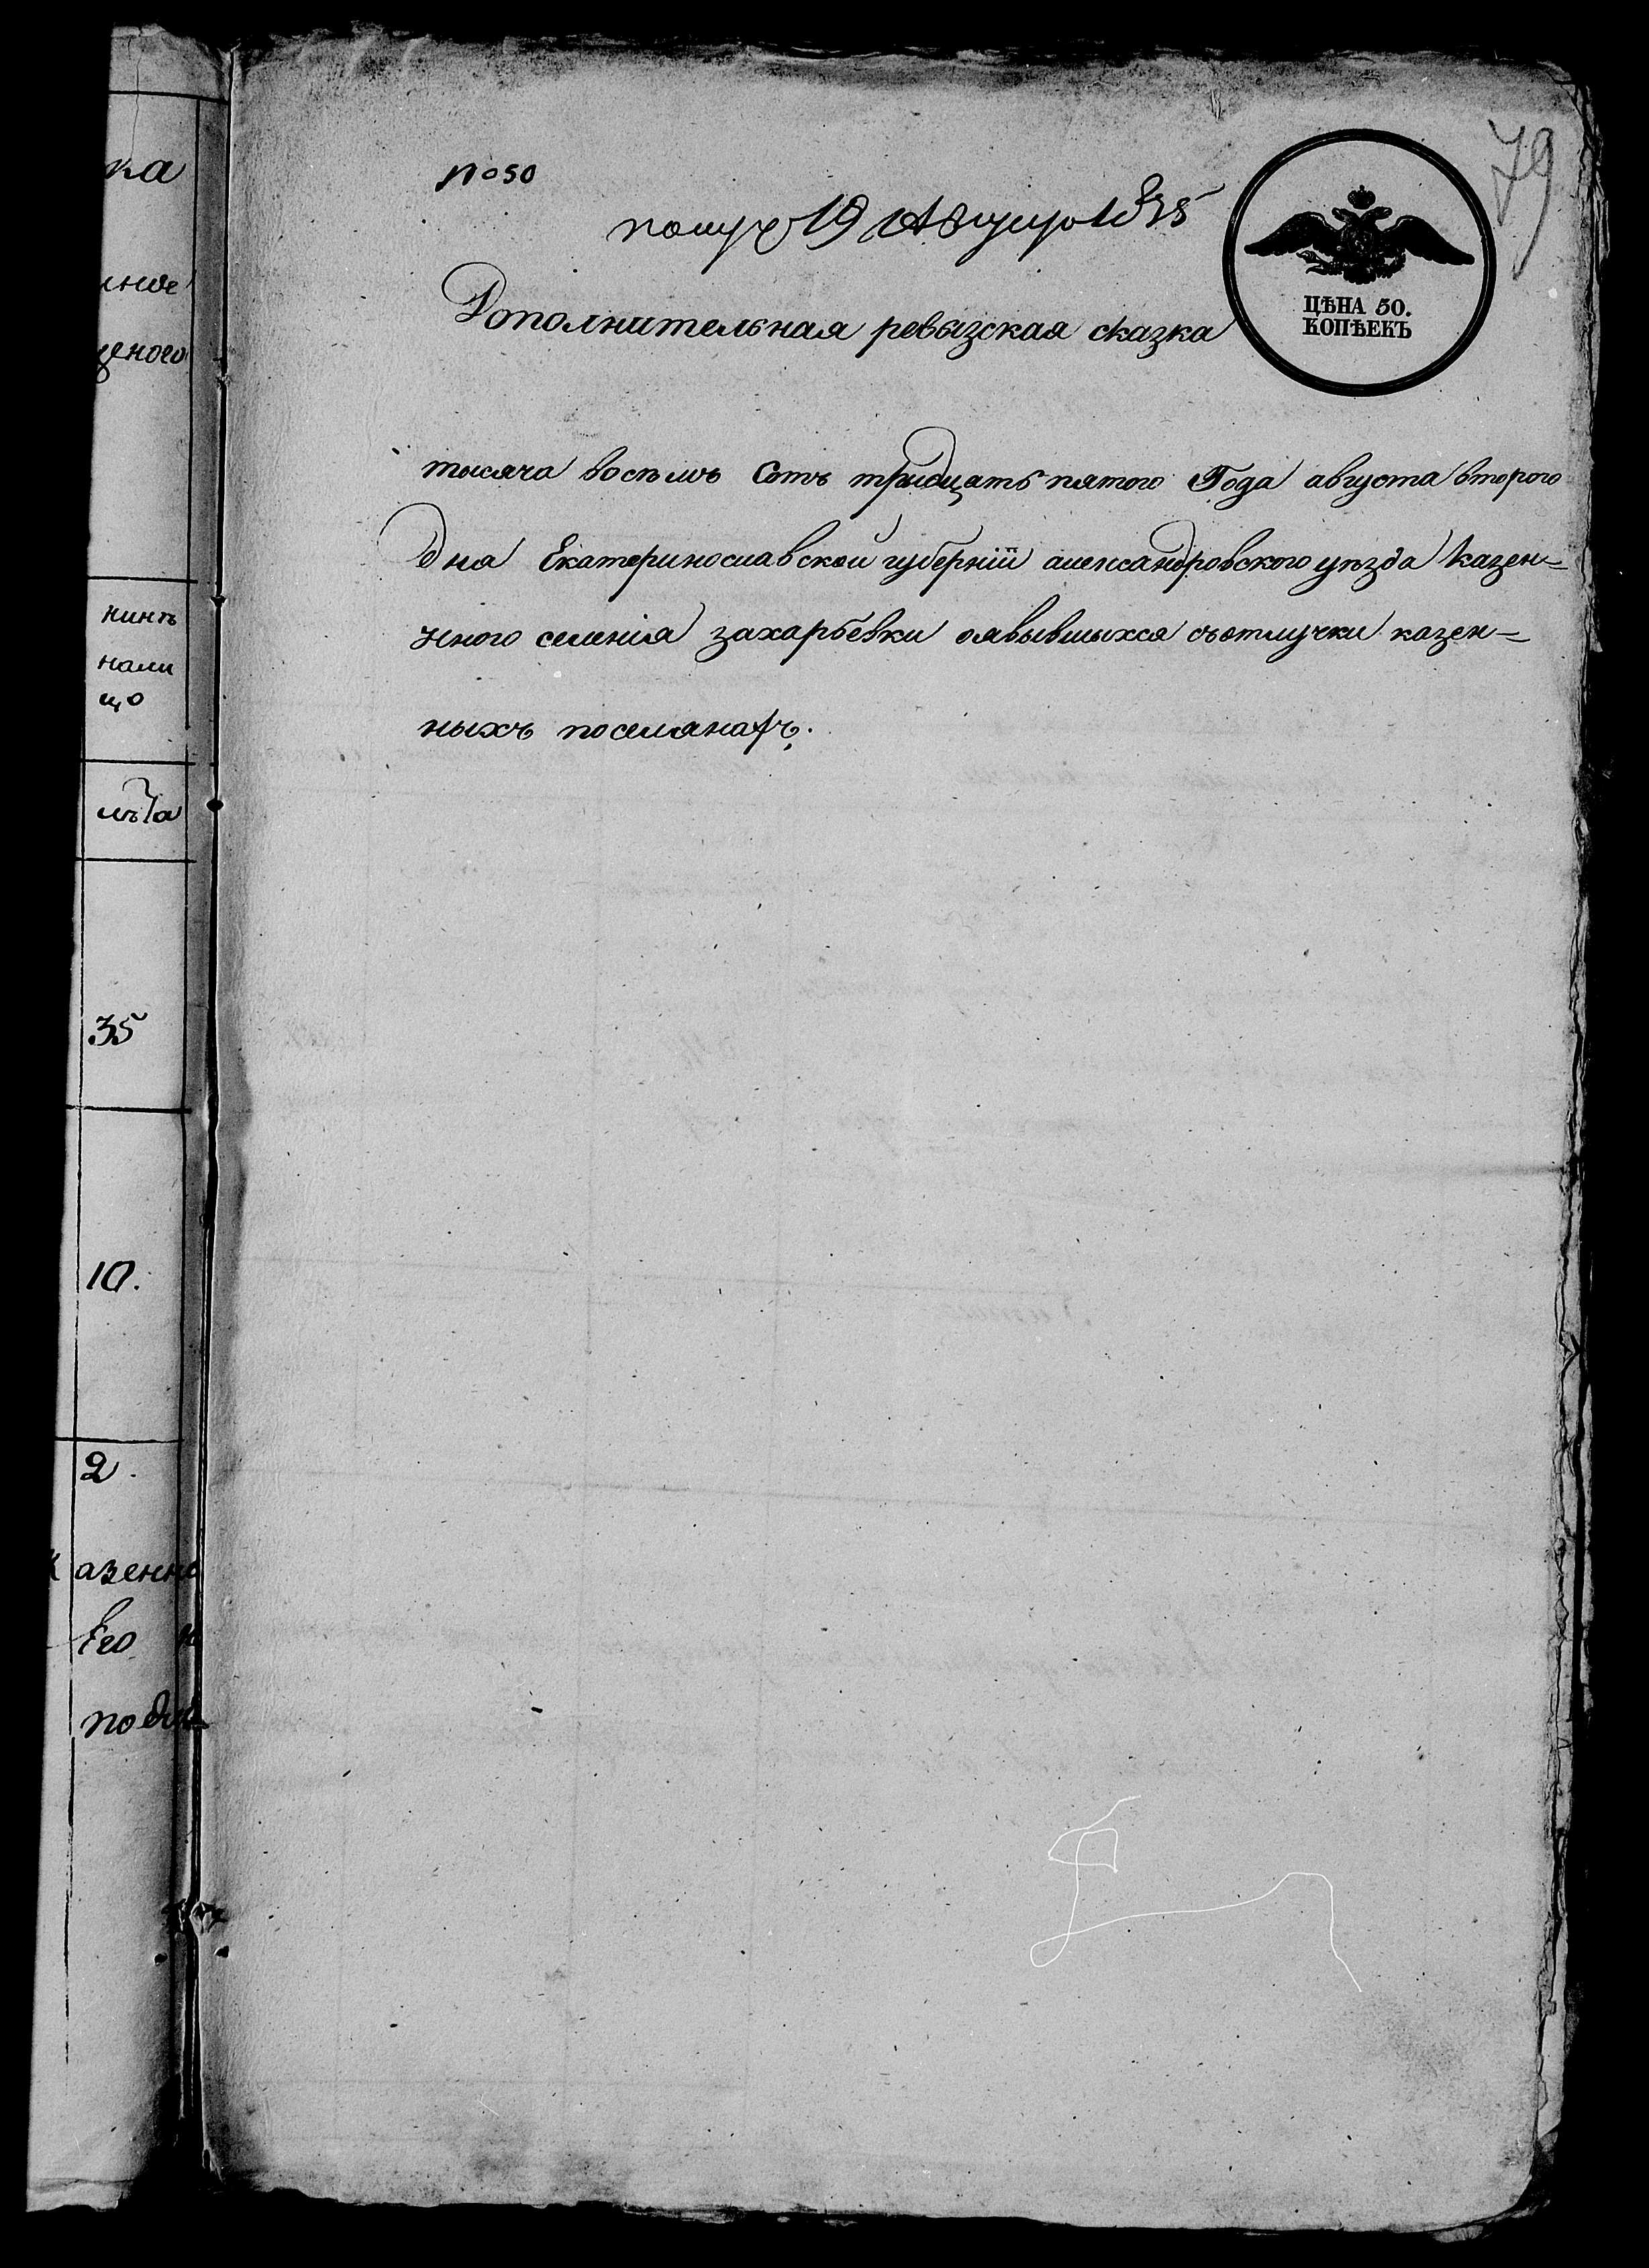 № 50
79
получ 19 Августа 1835
ЦѢНА 50.
КОПѢЕКЪ
Дополнительная ревызская сказка
тысяча восемъ Сотъ тридцать пятого Года августа второго
дня Екатеринославской губерніи александровского уѣзда казен=
ного селенія захарьевки оявывшыхся съотлучки казен=
ныхъ поселянахъ.
ка
ное
ного
нинѣ
нали
цо
лѣта
35
10.
2.
азенно
Его